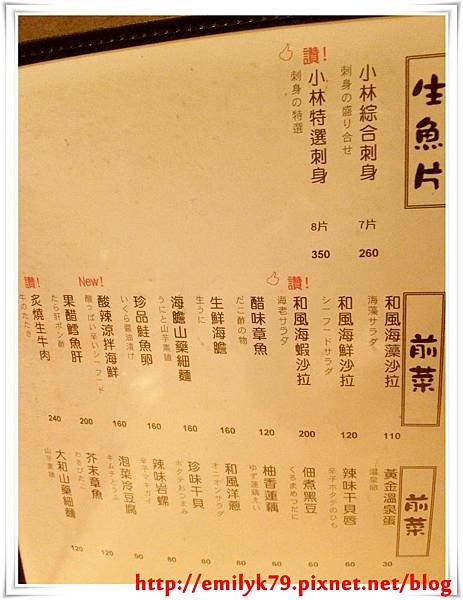 生魚片
小林綜合刺身
刺身の盛り合せ
7片
260
讚!
小林特選刺身
刺身の特選
8片
350
前菜
和風海藻沙拉
海藻サラダ
110
和風海鮮沙拉
シーフードサラダ
120
讚!
和風海蝦沙拉
海老サラダ
200
醋味章魚
だこ酢の物
120
生鮮海膽
生うに
160
海膽山藥細麵
うにと山芋素麺
160
珍品鮭魚卵
いくら醤油漬け
160
New!
酸辣涼拌海鮮
酸っぱい辛いシーフード
160
果醋鱈魚肝
たら肝ポン酢
200
讚!
炙燒生牛肉
牛のたたき
240
前菜
黃金溫泉蛋
温泉卵
30
辣味干貝唇
辛子ホタテのひも
60
佃煮黑豆
くろまめつだに
60
柚香蓮藕
60
和風洋蔥
オニオンサラダ
60
珍味干貝
ホタテおつまみ
80
辣味岩螺
辛子マキガイ
80
泡菜冷豆腐
キムチとうふ
90
芥末章魚
わさびたこ
120
大和山藥細麵
山芋素麺
120
http://emilyk79.pixnet.net/blog